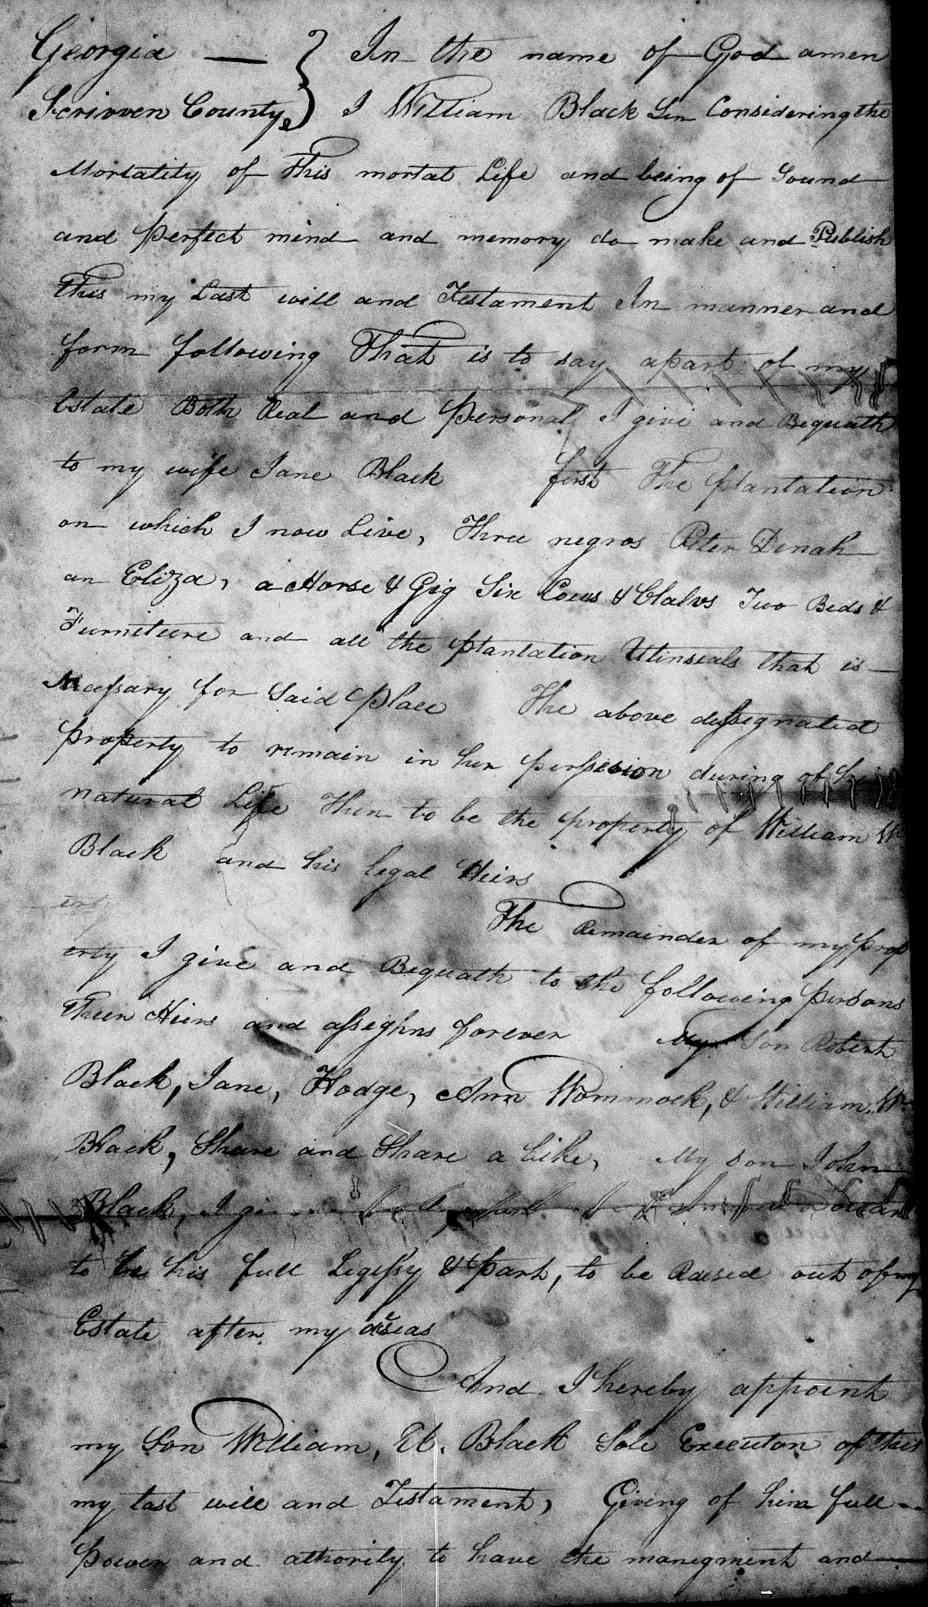 Georgia — } In the name of God amen
Scrivven County } I William Black Sen Considering the
Mortality of this mortal Life and being of Sound
and perfect mind and memory do make and Publish
This my Last will and Testament In manner and
form following That is to say apart of my
Estate Both Real and personal I give and Bequath
to my wife Jane Black first The plantation
on which I now Live, Three negros Peter Dinah
an Eliza, a Horse & Gig Six Cows & Calvs Two Beds &
Furniture and all the plantation Utinseals that is
Necessary for Said place The above dessignated
property to remain in her perssesion during of her
natural Life Then to be the property of William
Black and his legal Heirs
The Remainder of my prop
erty I give and Bequath to the following persons
Their Heirs and asseighns forever My Son Robert
Black, Jane, Hodge, Ann Wommock, & William,
Black, Share and Share a like, My son John
Black, I
to be his full Legessy & part, to be Raised out of my
Estate after my
And I hereby appoint
my Son William, Black Sole Executor of this
my last will and Testament, Giving of him full
power and athority to have the manegment and